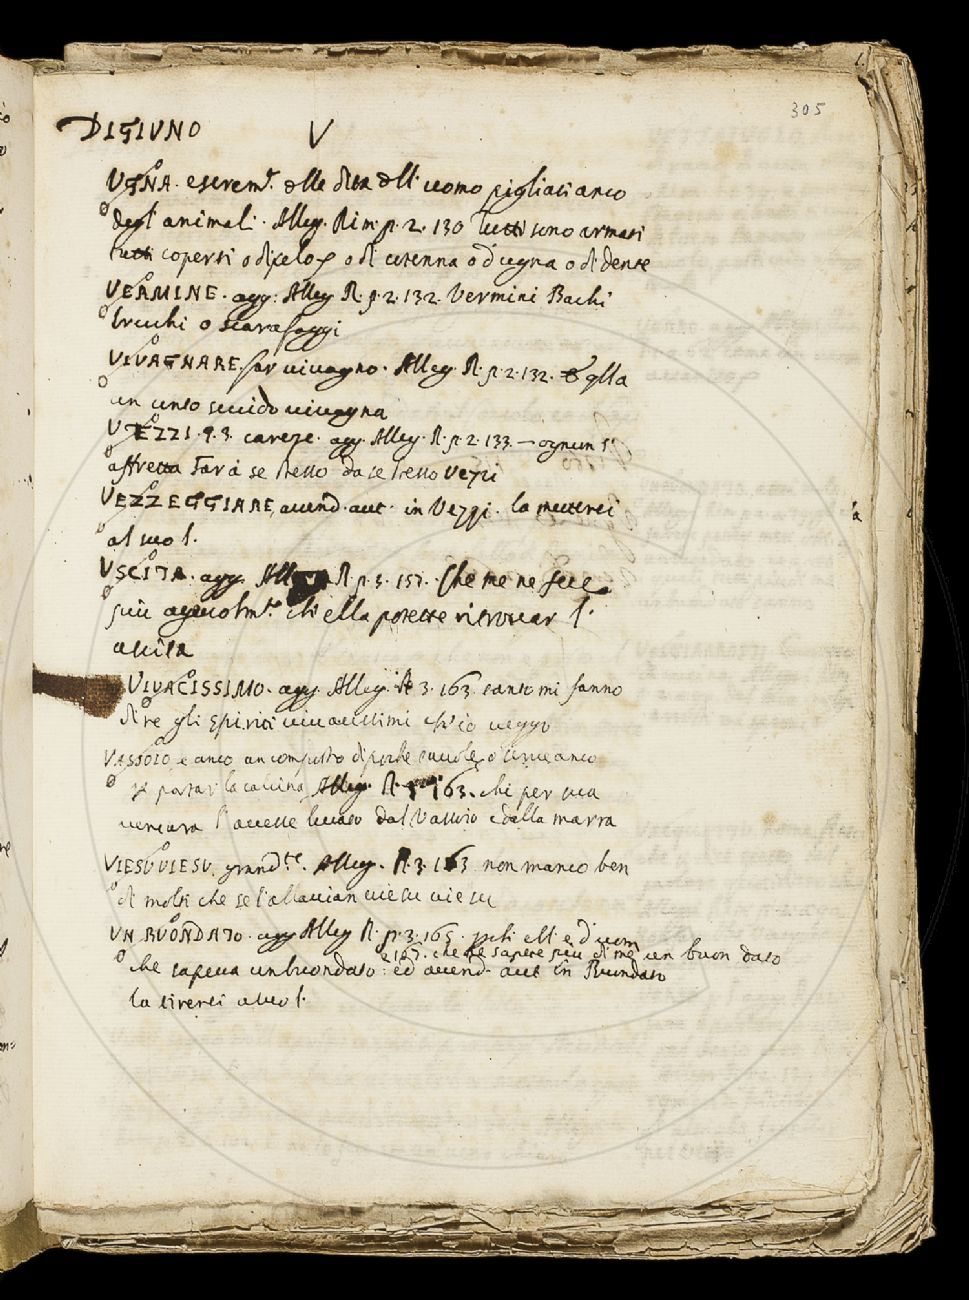 305
DIGIUNO V
UGNA. escrem.to delle dita dell' uomo pigliasi anco
degl' animali. Alleg. Rim. p. 2. 130 Tutti sono armati
tutti coperti o di pelo o di cotenna o d'ugna o di dente
VERMINE. agg: Alleg R. p. 2. 132. Vermini Bachi
bruchi o scarafaggi
VIVAGNARE. far vivagno. Alleg. R. p. 2. 132.
un unto sucido vivagna
VEZZI. 9. 3. careze. agg. Alleg. R. p. 2. 133. — ognun s'
affretta Farà se stesso da se stesso Vezzi
VEZZEGGIARE, avend. aut. in Vezzi. la metterei
al suo l.
USCITA. agg. Alleg R. p. 3. 157. Che me ne fece
più ch' ella potette ritrovar l'
uscita
VIVACISSIMO. agg. Alleg. R 3. 163. tanto mi fanno
dire gli spiriti vivacissimi ch' io veggo
VASSOIO, e anco un composto di
p portar la calcina Alleg. R. 163. chi per sua
ventura l'avesse levato dal Vassoio e dalla marra
VIESU VIESU. grand.te. Alleg. R. 3. 163 non manco ben
di molti che se l'allaccian viesu viesu
UN BUONDATO. agg Alleg R. p. 3. 165.
e 167. che ne sapere più di me un buon dato
che sapeva un buondato: ed avend. aut in Buondato
la tirerei a suo l.